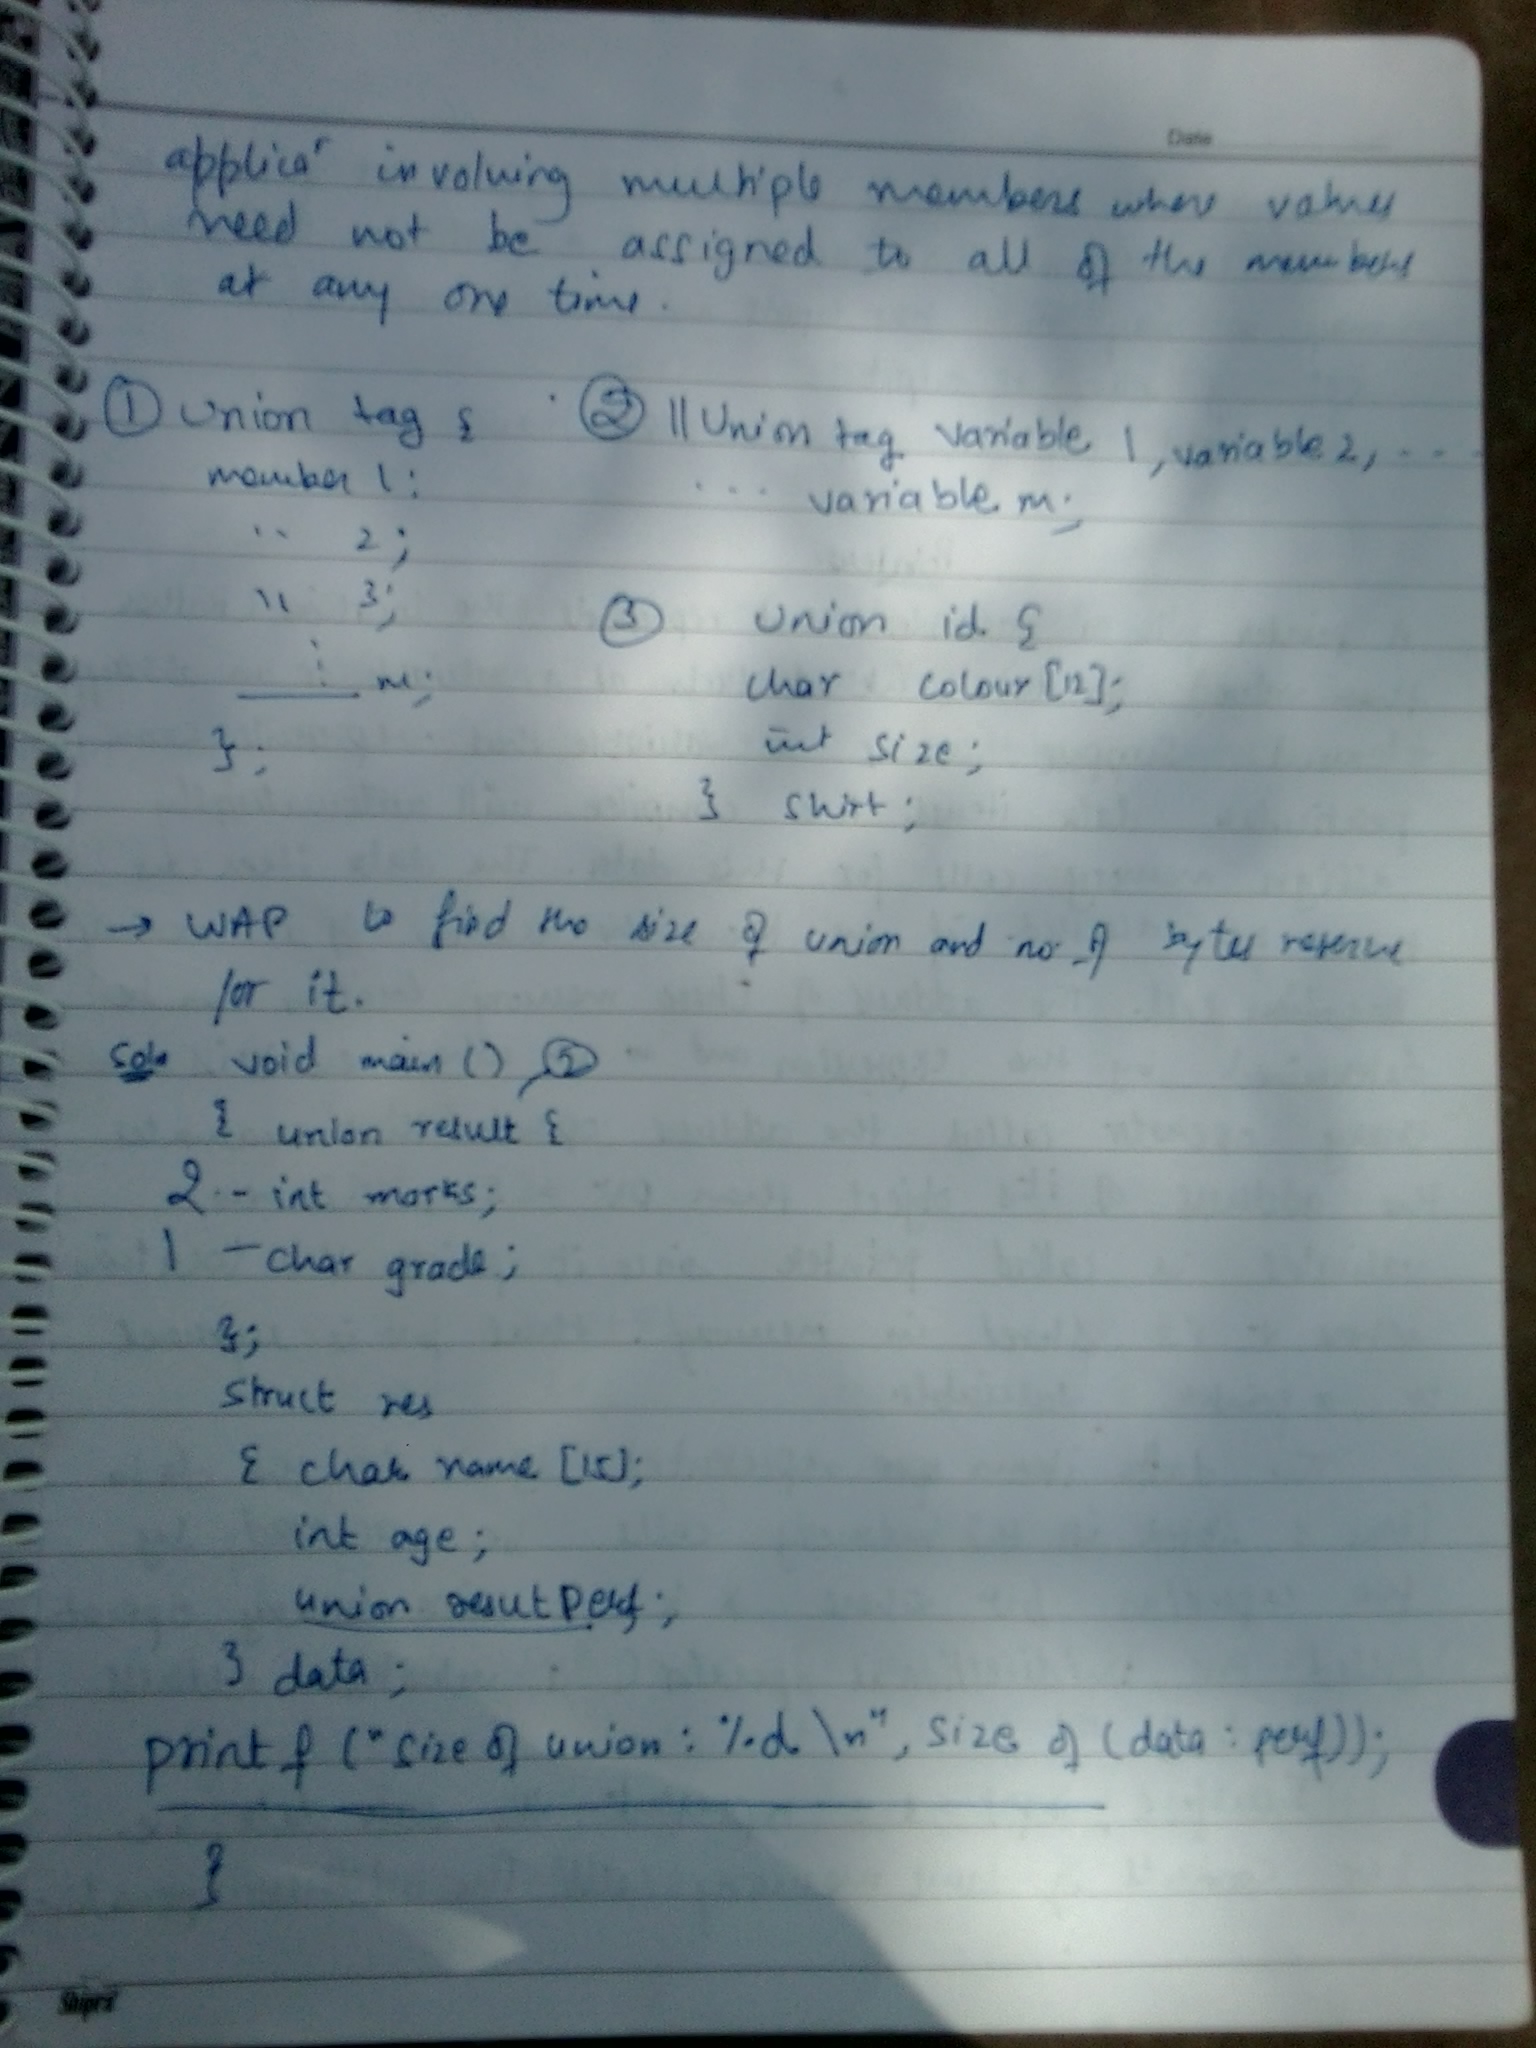 Date
applicaⁿ involving multiple members where values
need not be assigned to all of the members
at any one time.
① Union tag {
member 1;
" 2;
" 3;
⋮
___ m;
};
② || Union tag variable 1, variable 2, ...
... variable m;
③ Union id {
char colour [12];
int size;
} shirt;
→ WAP to find the size of union and no. of bytes reserve
for it.
Soln void main () ②
{ union result {
2 - int marks;
1 - char grade;
};
struct res
{ char name [15];
int age;
union resut perf;
} data;
printf ("size of union : %d \n", size of (data : perf));
}
Shipra